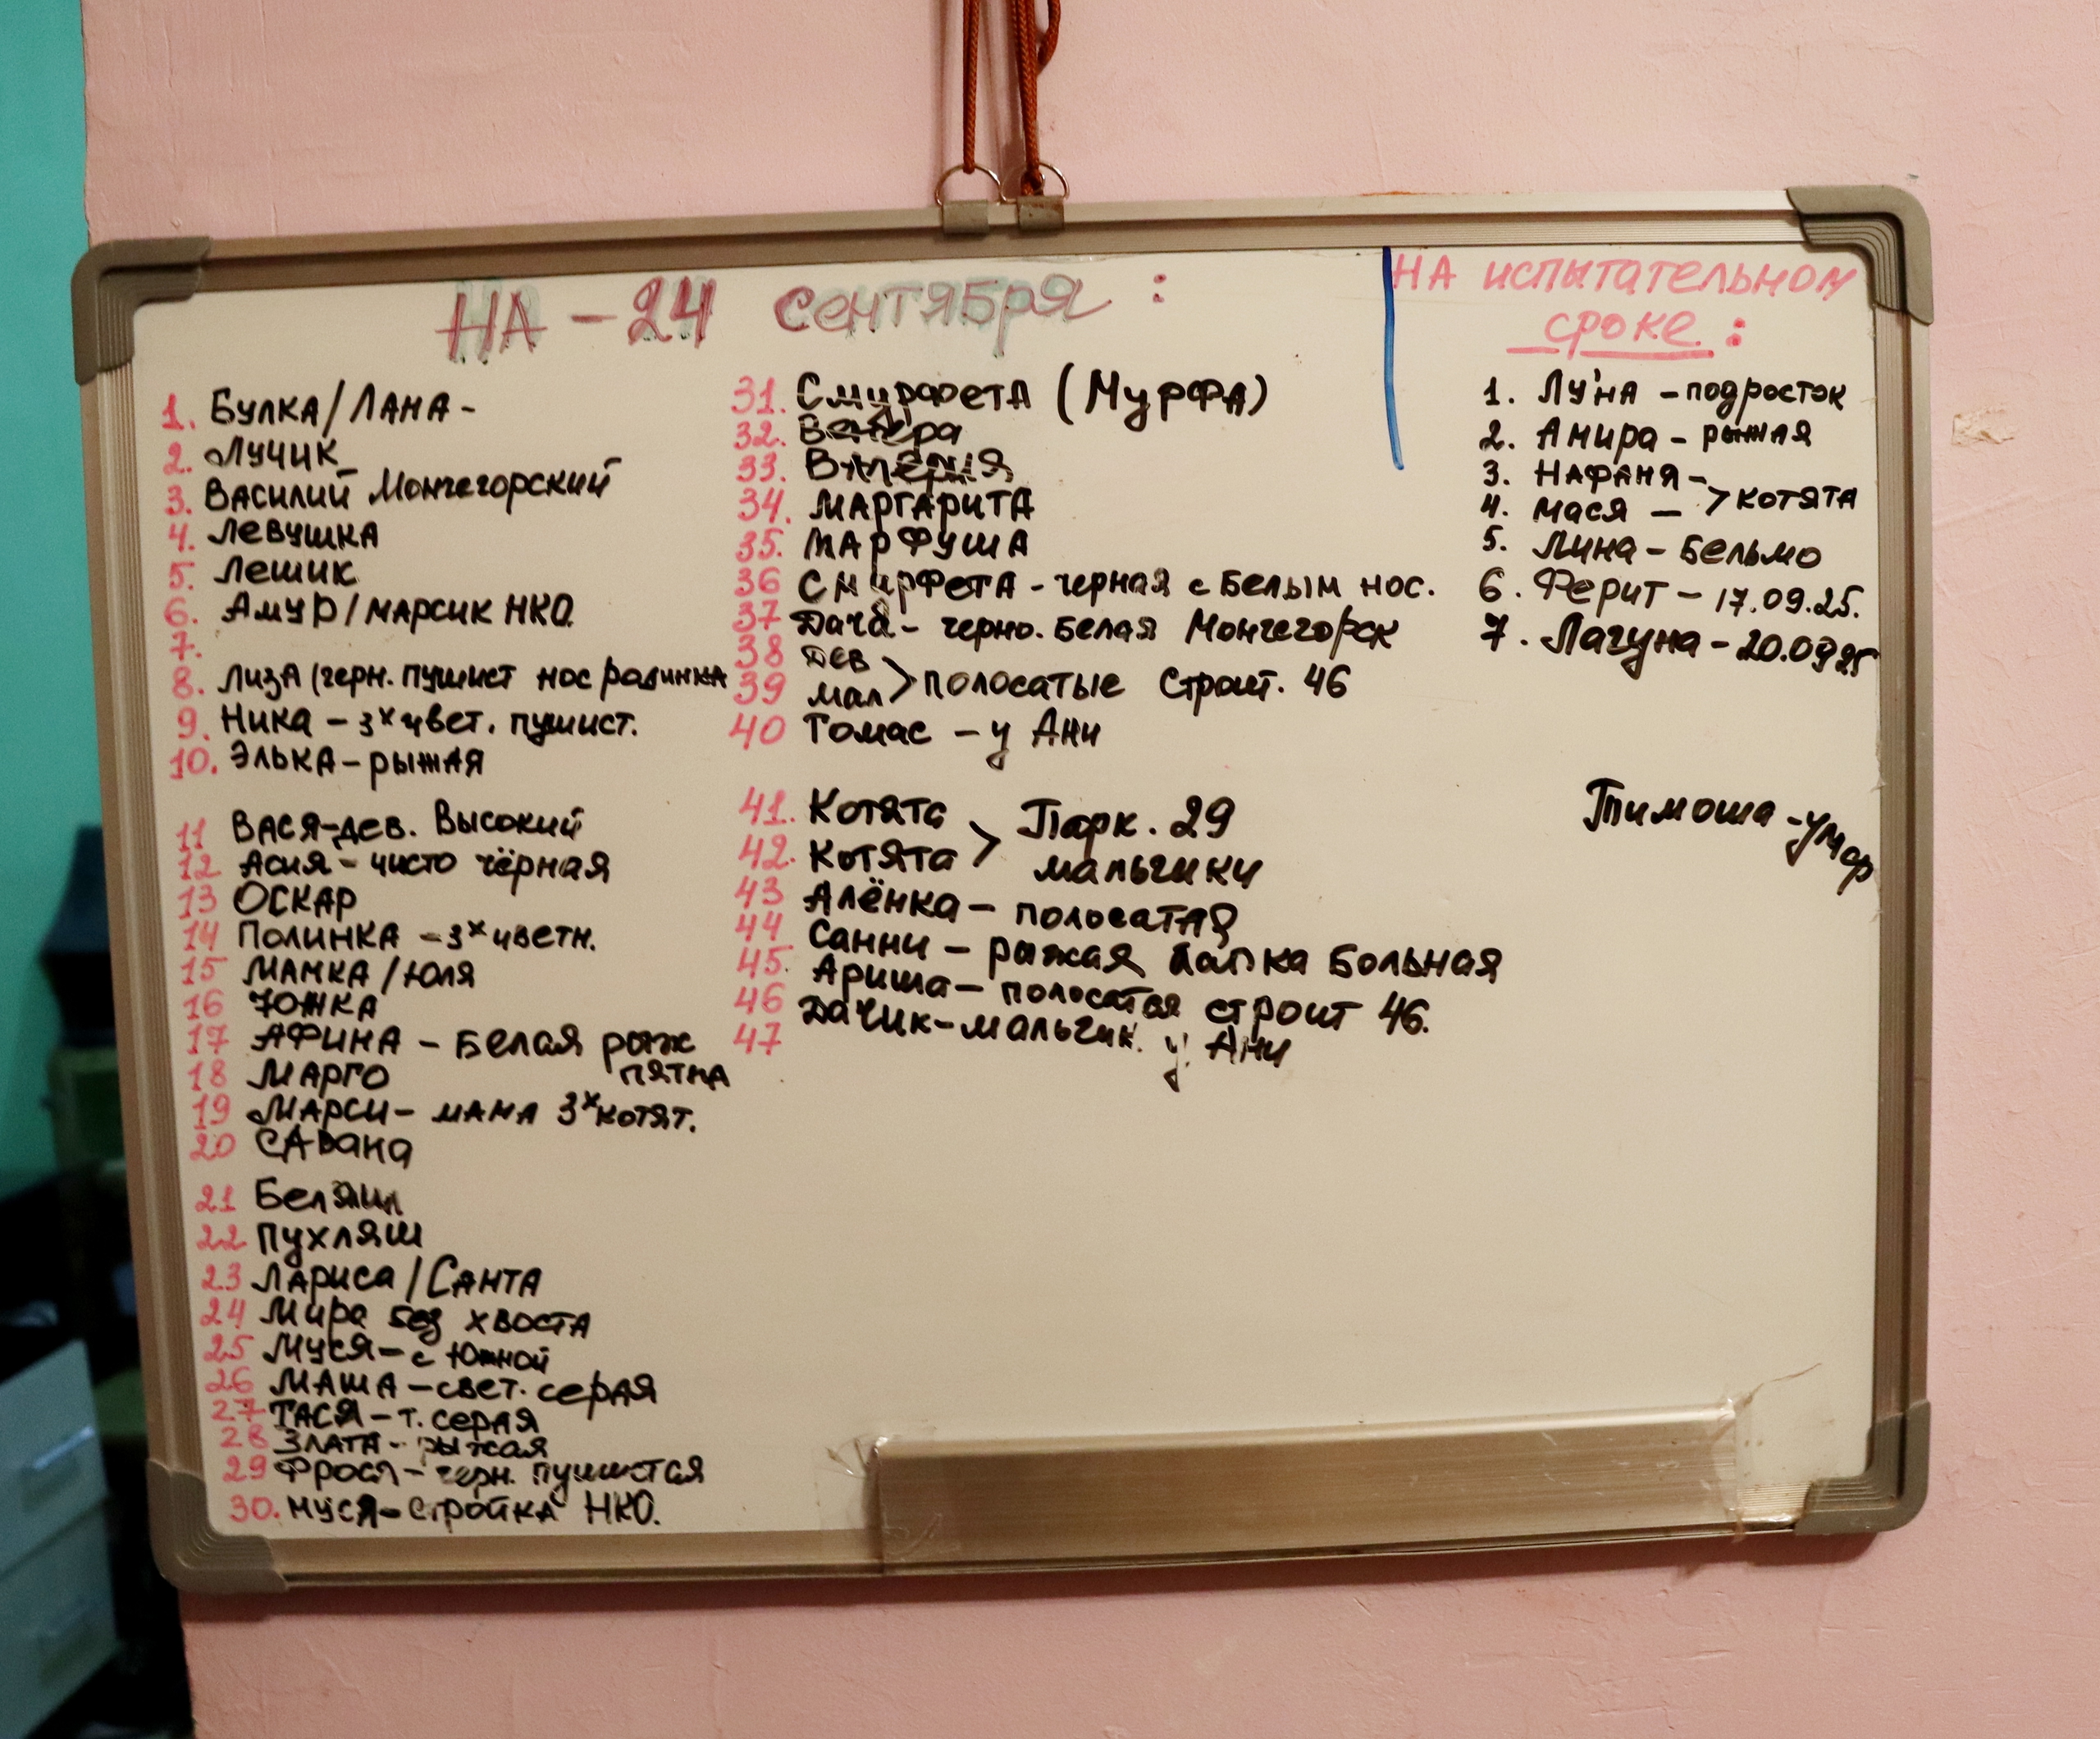 НА - 24 сентября :
1. Булка/Лана -
2. Лучик
3. Василий Мончегорский
4. Левушка
5. Лешик
6. Амур/Марсик НКО
7.
8. Лиза (черн. пушист нос родинка
9. Ника - 3х цвет. пушист.
10. Элька - рыжая
11 Вася-дев. Высокий
12 Асия - чисто чёрная
13 Оскар
14 Полинка - 3х цветн.
15 Мамка/Юля
16 Южка
17 Афина - Белая рыж
пятна
18 Марго
19 Марси - мама 3х котят.
20 Савана
21 Беляш
22 Пухляш
23 Лариса/Санта
24 Мира без хвоста
25 Муся - с Южной
26 Маша - свет. серая
27 Тася - т. серая
28 Злата - рыжая
29 Фрося - черн. пушистая
30. Муся - Стройка НКО.
31. Смурфета (Мурфа)
32. Венера
33. Валерия
34. Маргарита
35. Марфуша
36 Смурфета - черная с Белым нос.
37 Дача - черно. Белая Мончегорск
38 Дев
39 мал > полосатые Строит. 46
40 Томас - у Ани
41. Котята > Парк. 29
42. Котята мальчики
43 Алёнка - полосатая
44 Санни - рыжая лапка Больная
45. Ариша - полосатая строит 46.
46 Дачик - мальчик. у Ани
47
НА испытательном
сроке :
1. Луна - подросток
2. Амира - рыжая
3. Нафаня -
4. Мася - > котята
5. Лина - Бельмо
6. Ферит - 17.09.25.
7. Лагуна - 20.09 25
Тимоша - умер